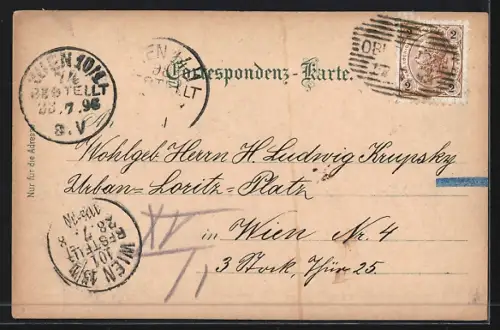 WIEN 10/1
BESTELLT
28.7.96
8.V
WIEN
BESTELLT
Correspondenz-Karte.
2 2
2 2
Nur für die Adresse
Wohlgeb. Herrn H. Ludwig Krupsky
Urban-Loritz-Platz
in Wien Nr. 4
3 Stock, Thür 25.
XV
WIEN
BESTELLT
28.7